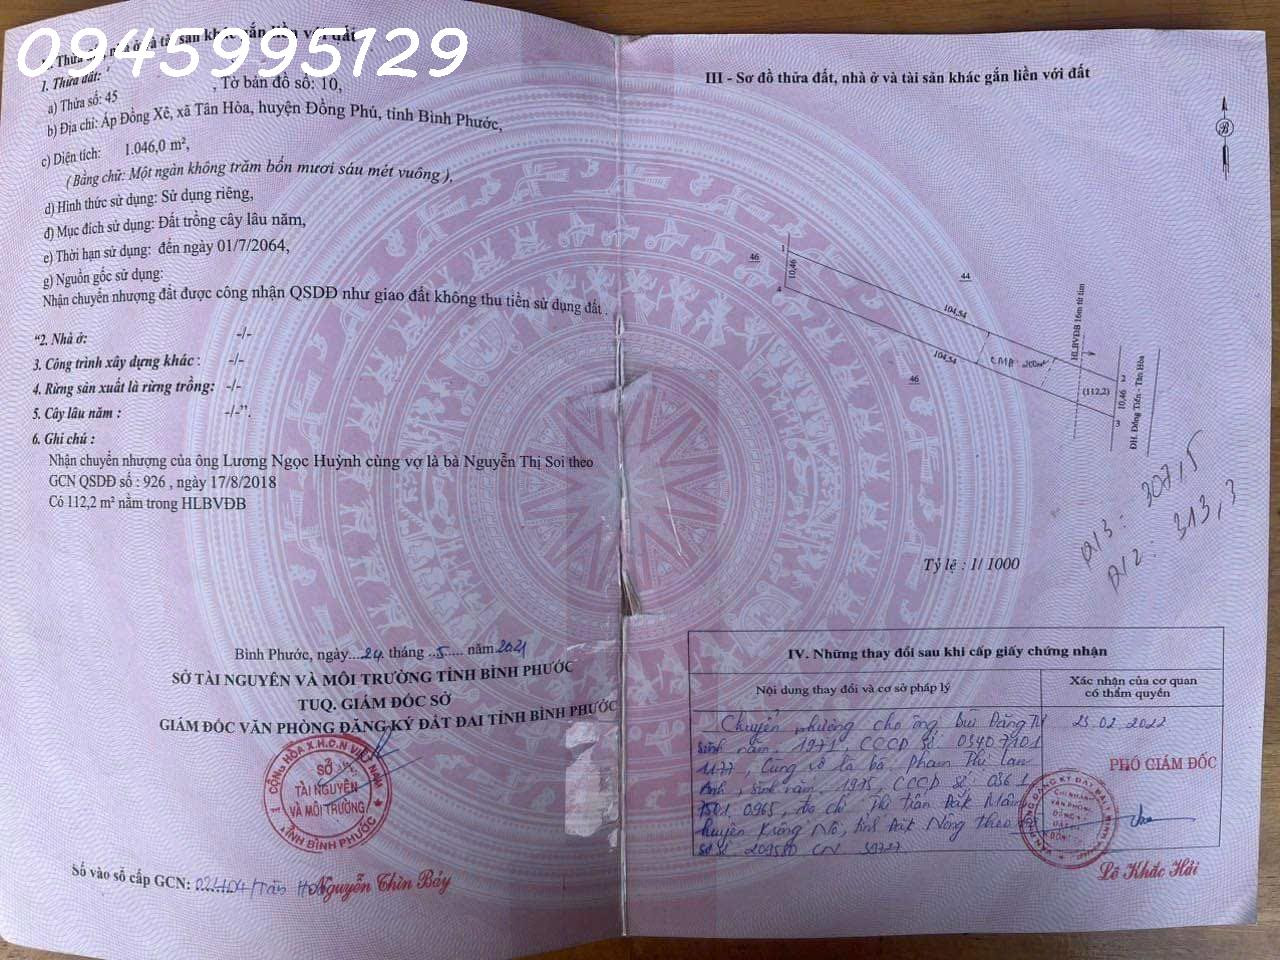 0945995129
I. Thửa đất, nhà ở và tài sản khác gắn liền với đất
1. Thửa đất:
a) Thửa số: 45 , Tờ bản đồ số: 10,
b) Địa chỉ: Ấp Đồng Xê, xã Tân Hòa, huyện Đồng Phú, tỉnh Bình Phước,
c) Diện tích: 1.046,0 m²,
( Bằng chữ: Một ngàn không trăm bốn mươi sáu mét vuông ),
d) Hình thức sử dụng: Sử dụng riêng,
đ) Mục đích sử dụng: Đất trồng cây lâu năm,
e) Thời hạn sử dụng: đến ngày 01/7/2064,
g) Nguồn gốc sử dụng:
Nhận chuyển nhượng đất được công nhận QSDĐ như giao đất không thu tiền sử dụng đất .
“2. Nhà ở: -/-
3. Công trình xây dựng khác : -/-
4. Rừng sản xuất là rừng trồng: -/-
5. Cây lâu năm : -/-”.
6. Ghi chú :
Nhận chuyển nhượng của ông Lương Ngọc Huỳnh cùng vợ là bà Nguyễn Thị Soi theo
GCN QSDĐ số : 926 , ngày 17/8/2018
Có 112,2 m² nằm trong HLBVĐB
Bình Phước, ngày...24 tháng ..5..... năm 2021
SỞ TÀI NGUYÊN VÀ MÔI TRƯỜNG TỈNH BÌNH PHƯỚC
TUQ. GIÁM ĐỐC SỞ
GIÁM ĐỐC VĂN PHÒNG ĐĂNG KÝ ĐẤT ĐAI TỈNH BÌNH PHƯỚC
CỘNG HÒA X.H.C.N VIỆT NAM
SỞ
TÀI NGUYÊN
VÀ MÔI TRƯỜNG
TỈNH BÌNH PHƯỚC
Số vào sổ cấp GCN:
Nguyễn Thìn Bảy
III - Sơ đồ thửa đất, nhà ở và tài sản khác gắn liền với đất
B
46
1
10,46
4
44
104,54
104,54
46
HLBVĐB 16m từ tim
2
(112,2)
10,46
3
ĐH. Đồng Tiến - Tân Hòa
307,5
313,3
Tỷ lệ : 1/ 1000
IV. Những thay đổi sau khi cấp giấy chứng nhận
Nội dung thay đổi và cơ sở pháp lý
Xác nhận của cơ quan
có thẩm quyền
Chuyển nhượng cho ông Bùi Đăng
sinh năm 1971, CCCD số:
cùng vợ là bà Phạm Thị Lan
sinh năm 1975, CCCD số:
huyện Krông Nô, tỉnh Đăk Nông theo
23.02.2022
PHÓ GIÁM ĐỐC
Lê Khắc Hải